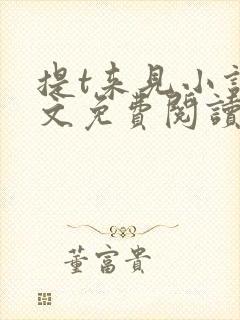 提t来见小説
文免費閱讀
董富貴